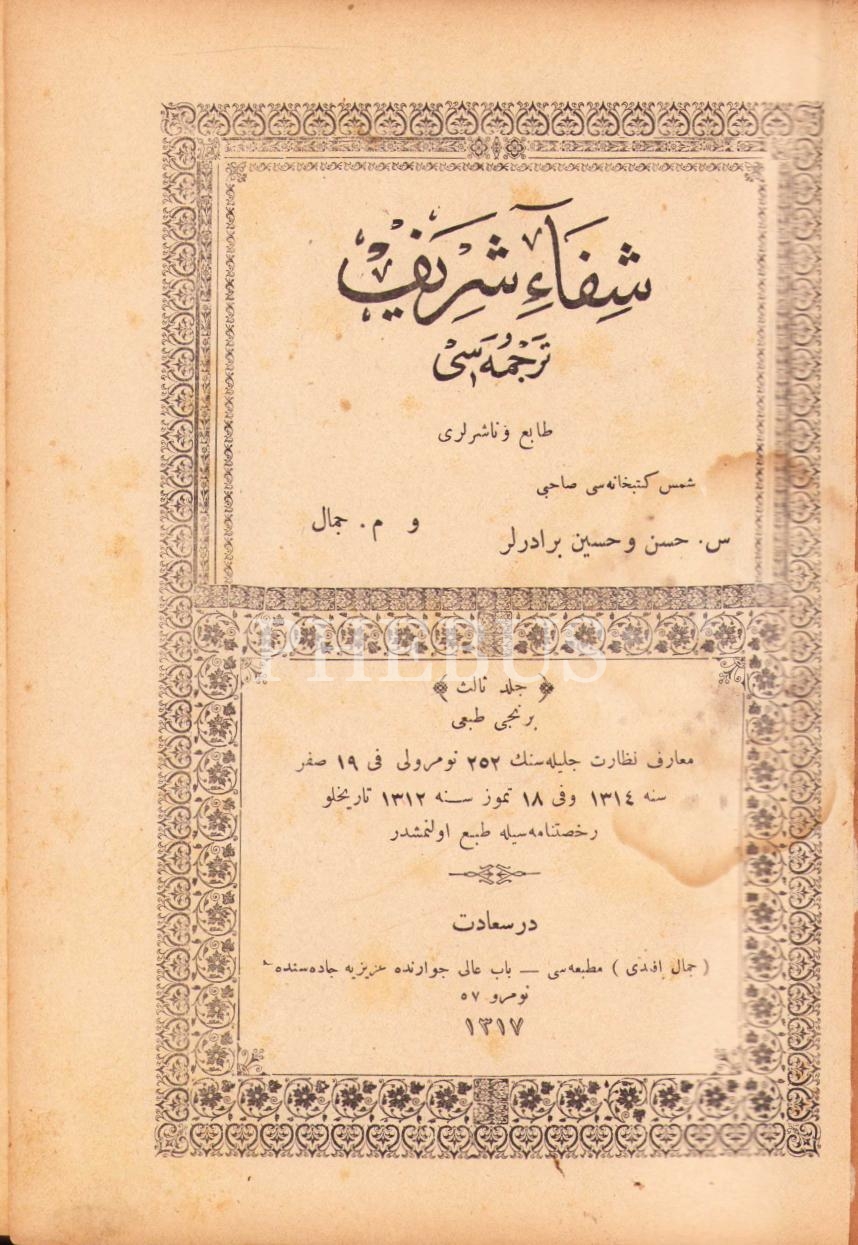 شِفَآءِ شَرِيف
تَرجُمه‌سى
طابع و ناشرلرى
شمس كتبخانه‌سى صاحبى
س. حسن و حسين برادرلر و م. جمال
PHEBUS
جلد ثالث
برنجى طبعى
معارف نظارت جليله‌سنك ٢٥٢ نومرولى فى ١٩ صفر
سنه ١٣١٤ وفى ١٨ تموز سـنه ١٣١٢ تاريخلو
رخصتنامه‌سيله طبع اولنمشدر
در سعادت
( جمال افندى ) مطبعه‌سى — باب عالى جوارنده عزيزيه جاده‌سنده
نومرو ٥٧
١٣١٧